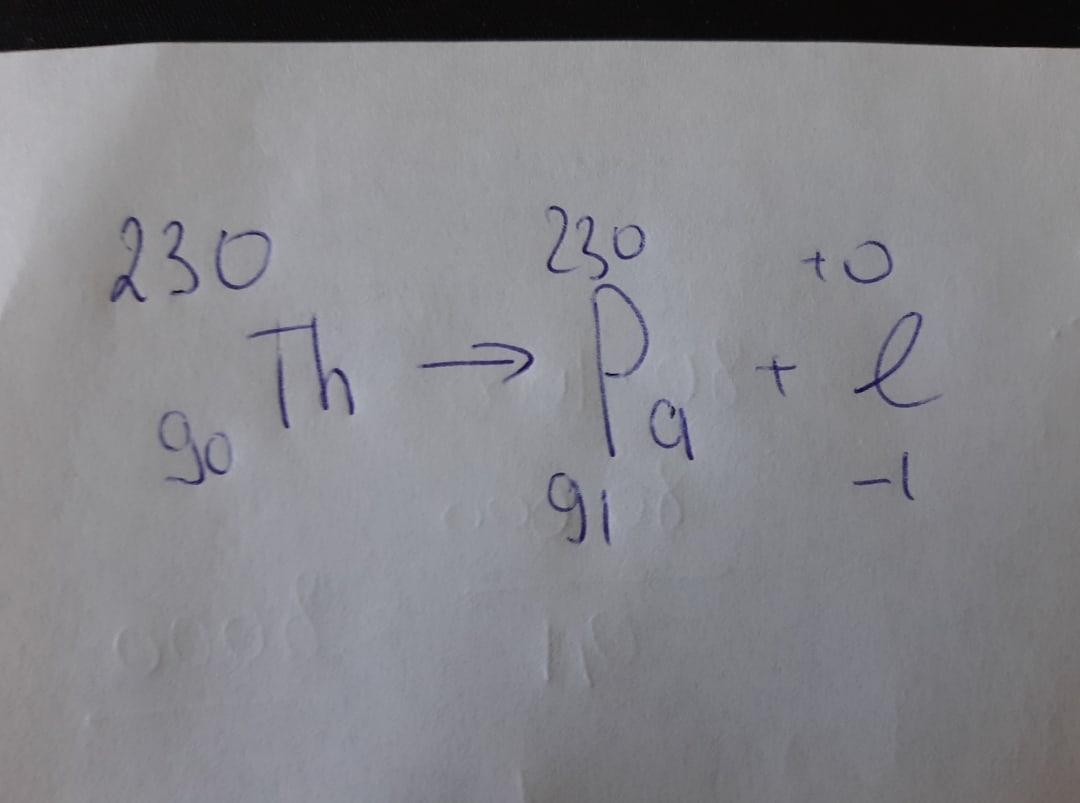 230 230 +0
Th → Pa + e
90 91 -1